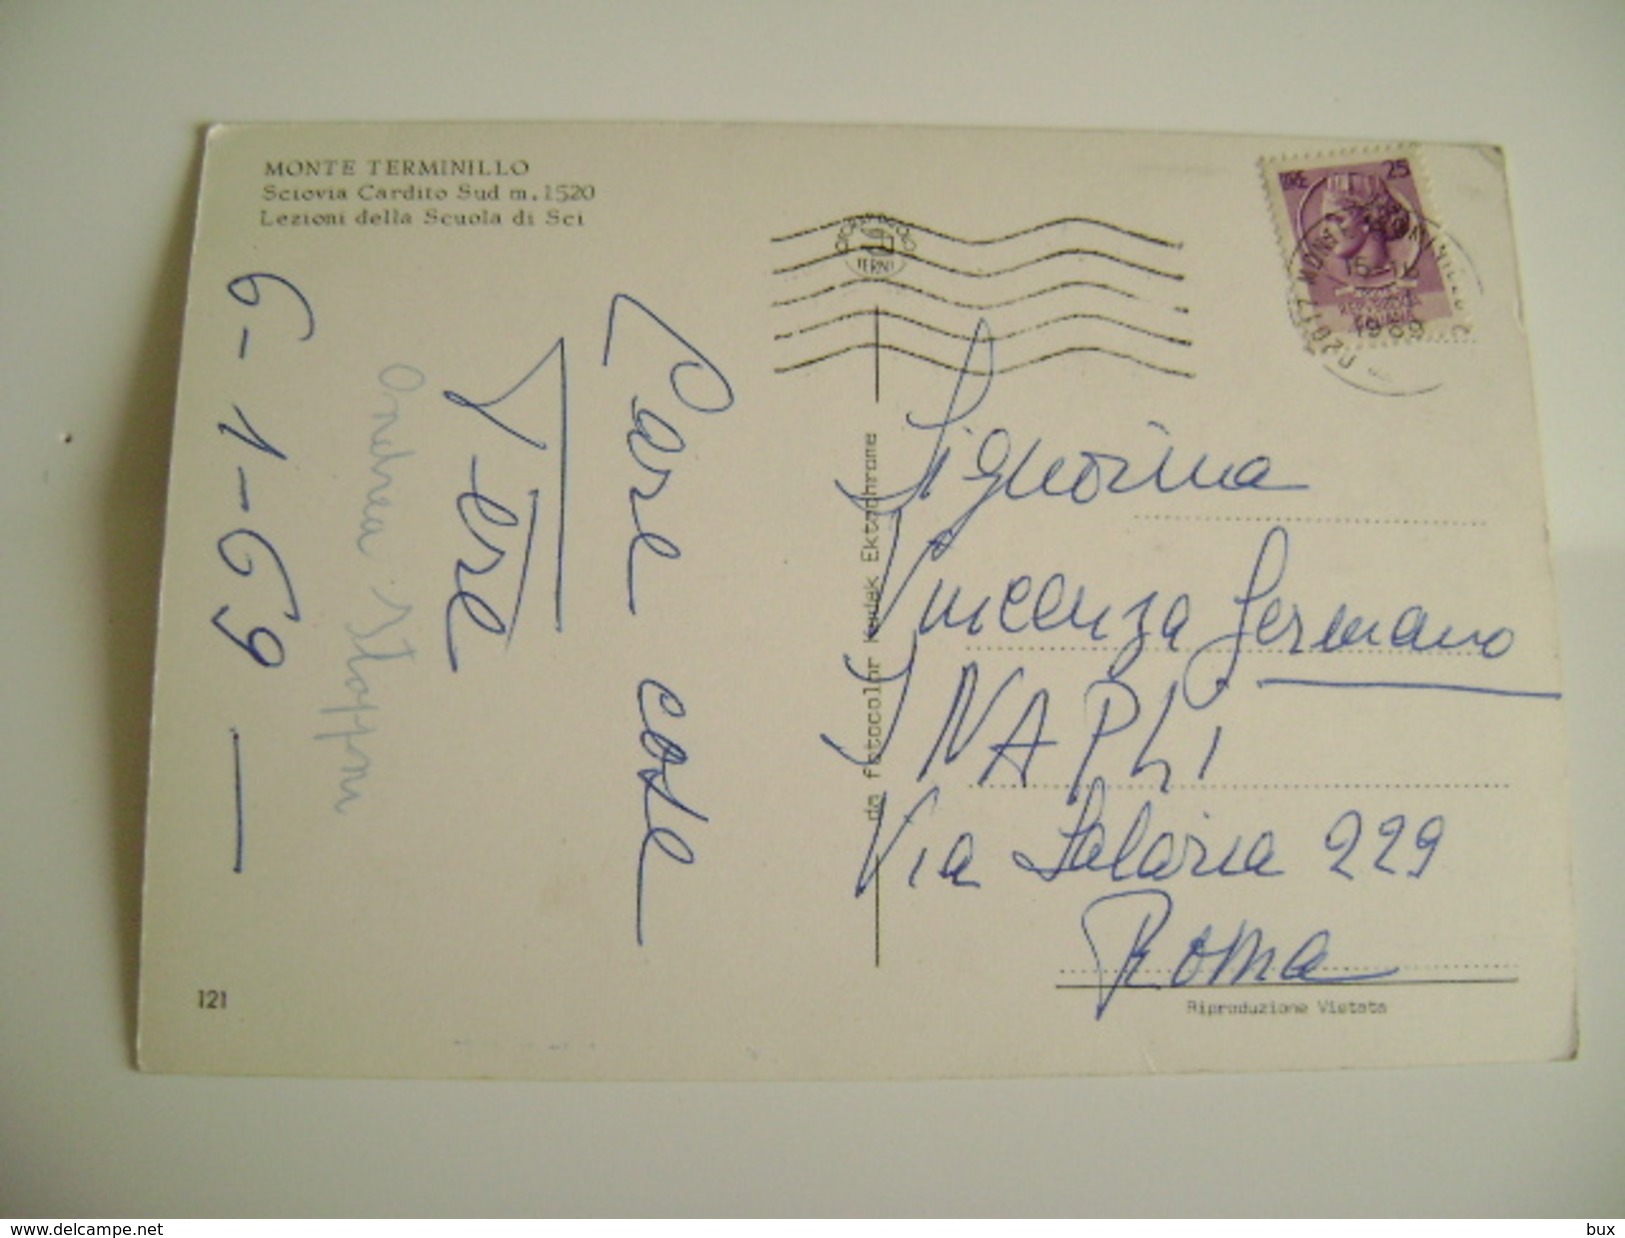 MONTE TERMINILLO
Sciovia Cardito Sud m.1520
Lezioni della Scuola di Sci
Care cose
6-1-69
Andrea
TERNI
LIRE 25
1969
da fotocolor Kodak Ektachrome
Signorina
Vincenza Germano
NAPLI
Via Salaria 229
Roma
Riproduzione Vietata
121
www.delcampe.net
bux